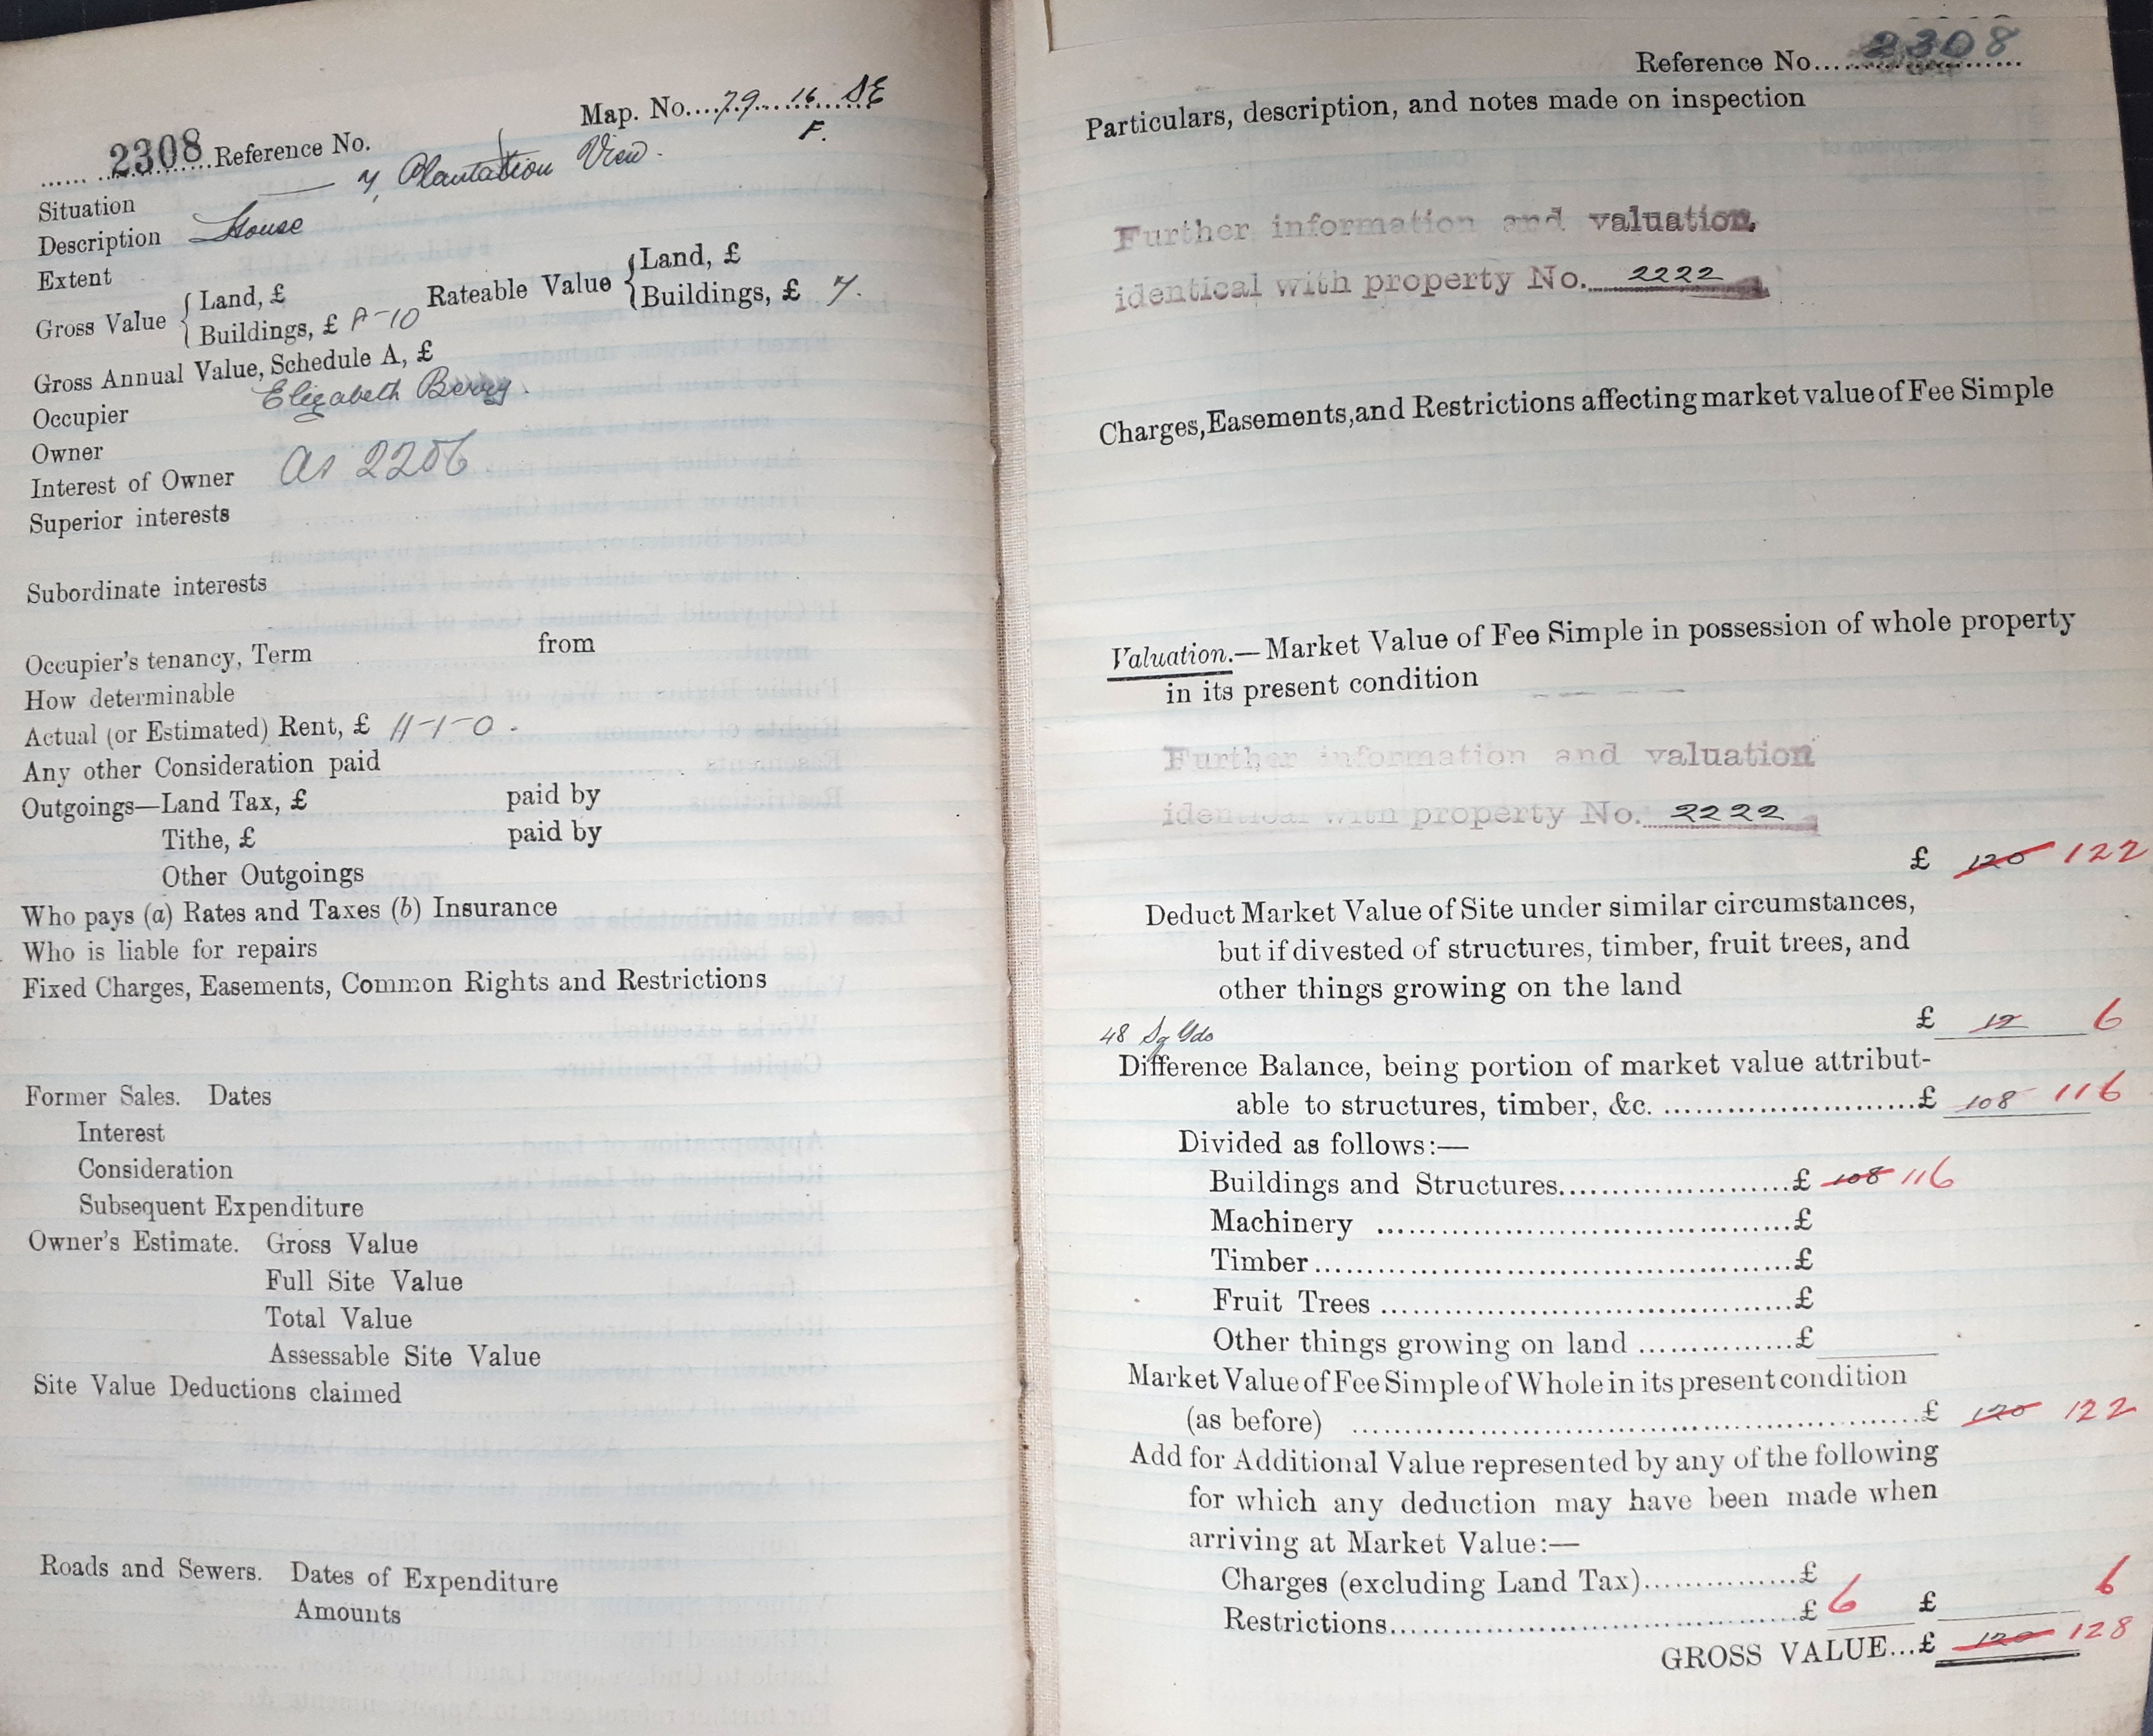 Map. No....79...16...SE
F.
2308 Reference No.
Situation 7, Plantation View.
Description House
Extent
Gross Value { Land, £ Buildings, £ 8-10 Rateable Value { Land, £ Buildings, £ 7.
Gross Annual Value, Schedule A, £
Occupier Elizabeth Berry.
Owner
Interest of Owner as 2206
Superior interests
Subordinate interests
Occupier's tenancy, Term from
How determinable
Actual (or Estimated) Rent, £ 11-1-0.
Any other Consideration paid
Outgoings—Land Tax, £ paid by
Tithe, £ paid by
Other Outgoings
Who pays (a) Rates and Taxes (b) Insurance
Who is liable for repairs
Fixed Charges, Easements, Common Rights and Restrictions
Former Sales. Dates
Interest
Consideration
Subsequent Expenditure
Owner's Estimate. Gross Value
Full Site Value
Total Value
Assessable Site Value
Site Value Deductions claimed
Roads and Sewers. Dates of Expenditure
Amounts
Reference No. 2308
Particulars, description, and notes made on inspection
Further information and valuation
identical with property No. 2222
Charges, Easements, and Restrictions affecting market value of Fee Simple
Valuation.—Market Value of Fee Simple in possession of whole property
in its present condition
Further information and valuation
identical with property No. 2222
£ 120 122
Deduct Market Value of Site under similar circumstances,
but if divested of structures, timber, fruit trees, and
other things growing on the land
48 Sq Yds £ 12 6
Difference Balance, being portion of market value attribut-
able to structures, timber, &c. £ 108 116
Divided as follows:—
Buildings and Structures £ 108 116
Machinery £
Timber £
Fruit Trees £
Other things growing on land £
Market Value of Fee Simple of Whole in its present condition
(as before) £ 120 122
Add for Additional Value represented by any of the following
for which any deduction may have been made when
arriving at Market Value:—
Charges (excluding Land Tax) £
Restrictions £ 6 £ 6
GROSS VALUE...£ 120 128